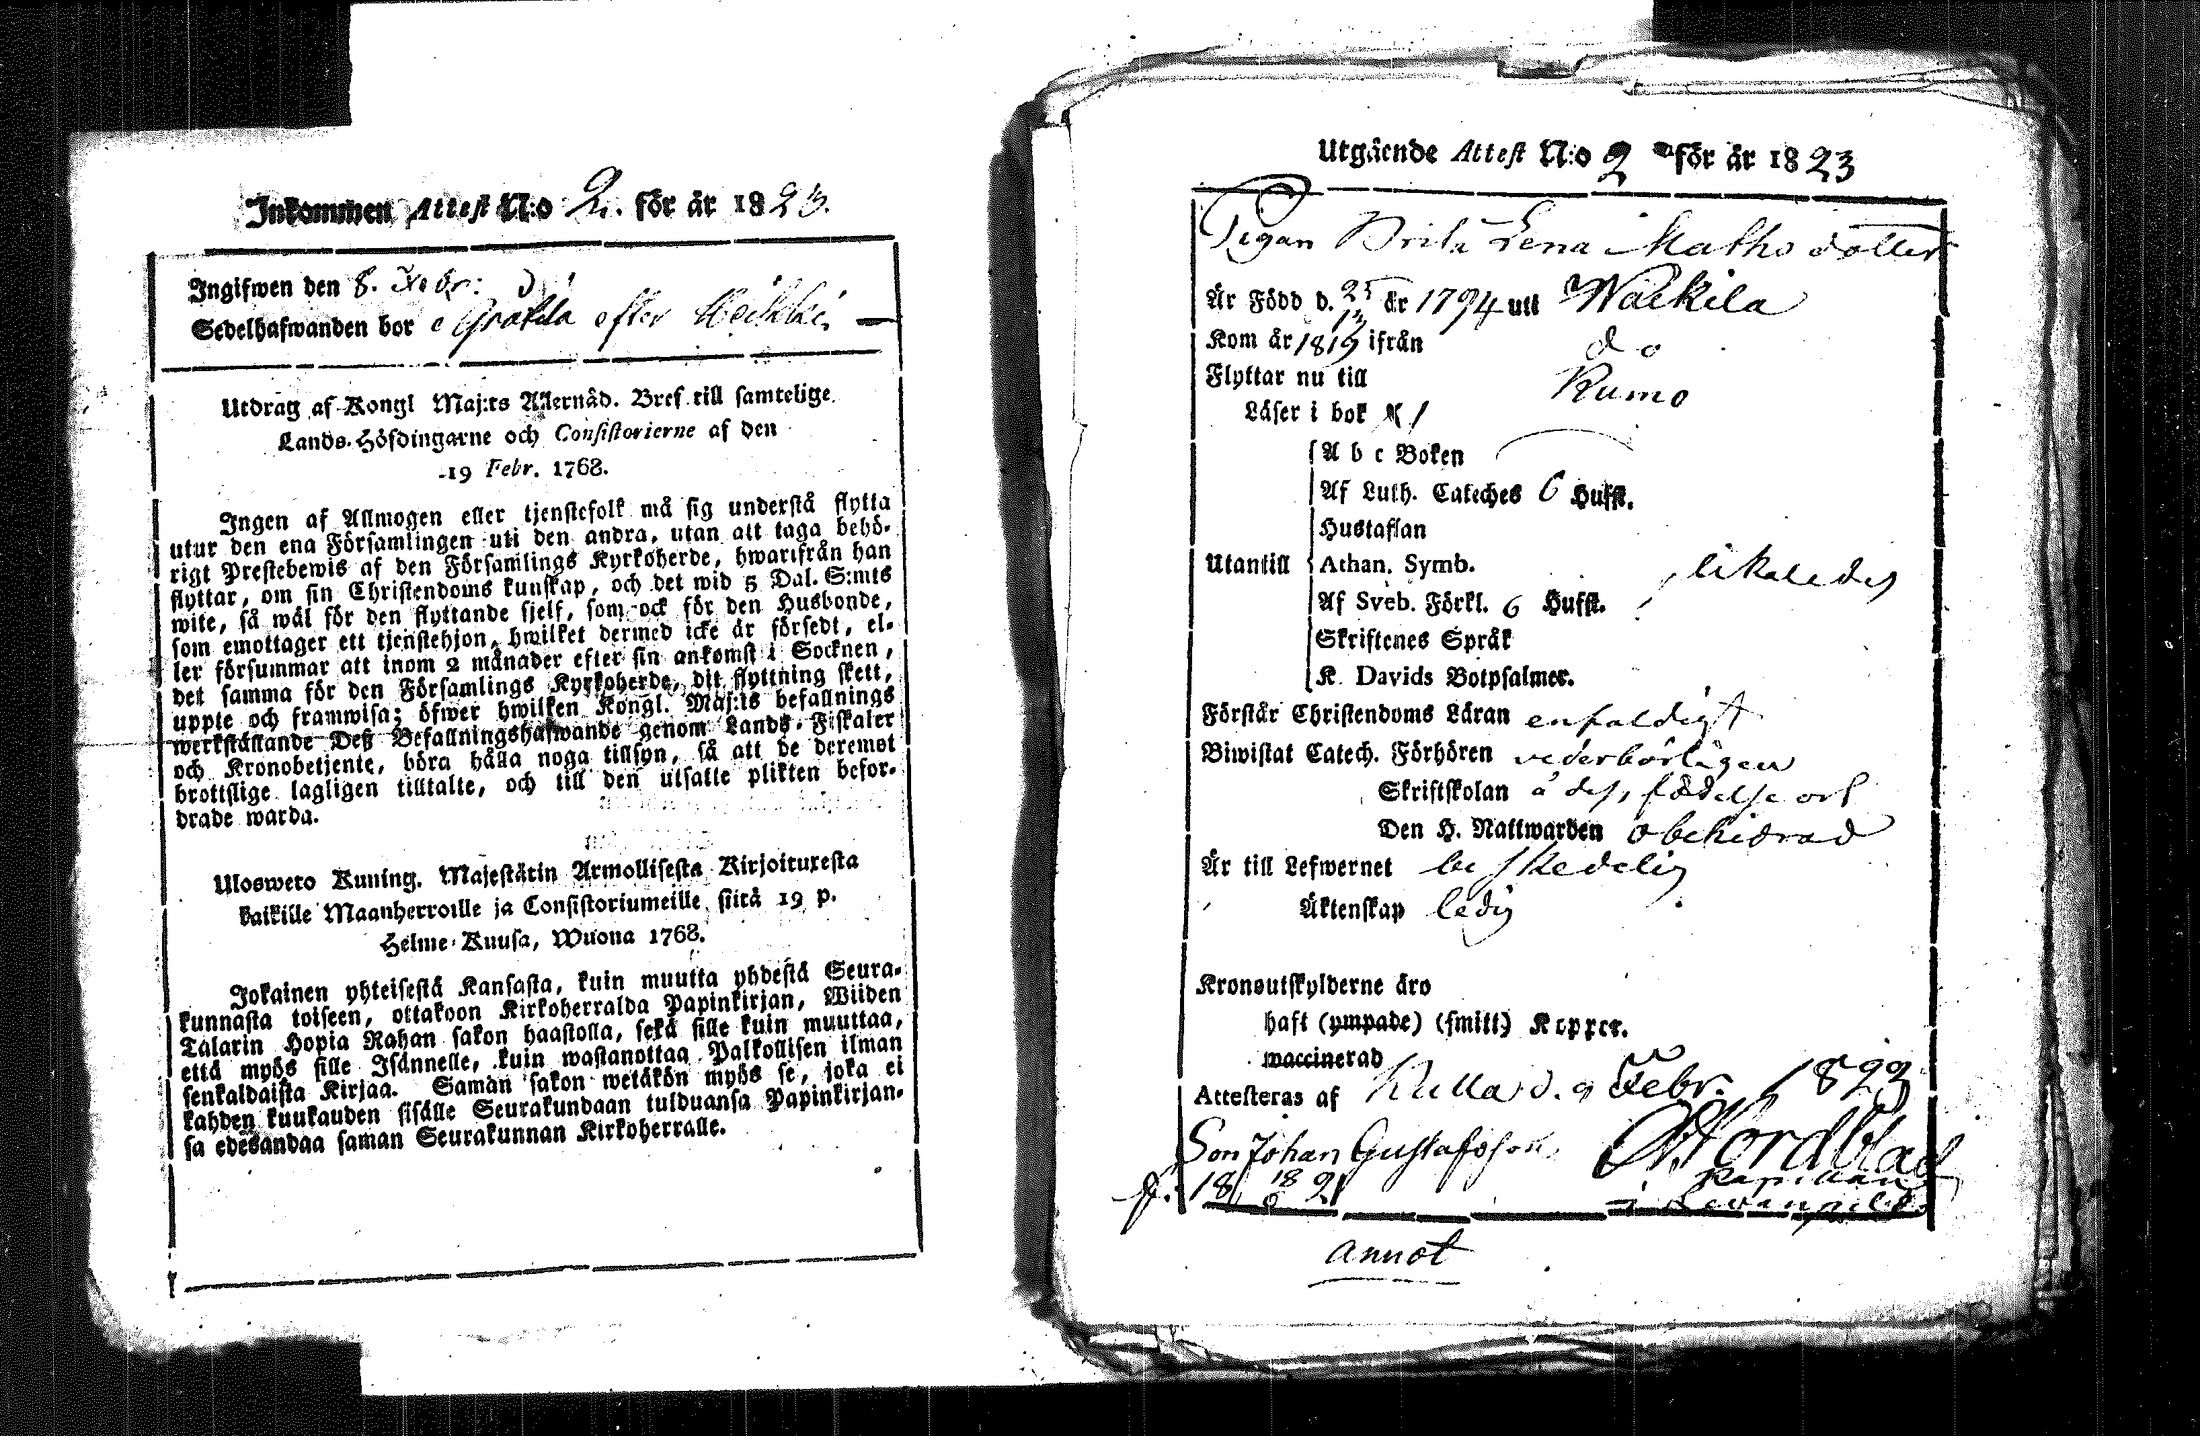 Inkommen Attest N:o 2. för år 1823.
Ingifwen den 8. Febr:
Sedelhafwanden bor efter Heikki
Utdrag af Kongl Maj:ts Allernåd. Bref till samtelige
Lands-Höfdingarne och Consistorierne af den
19 Febr. 1768.
Ingen af Allmogen eller tjenstefolk må sig understå flytta
utur den ena Församlingen uti den andra, utan att taga behö-
rigt Prestebewis af den Församlings Kyrkoherde, hwarifrån han
flyttar, om sin Christendoms kunskap, och det wid 5 Dal. S:mts
wite, så wäl för den flyttande sjelf, som ock för den Husbonde,
som emottager ett tjenstehjon, hwilket dermed icke är försedt, el-
ler försummar att inom 2 månader efter sin ankomst i Socknen,
det samma för den Församlings Kyrkoherde, dit flyttning skett,
uppte och framwisa; öfwer hwilken Kongl. Maj:ts befallnings
werkställande Deß Befallningshafwande genom Lands-Fiskaler
och Kronobetjente, böra hålla noga tillsyn, så att de deremot
brottslige lagligen tilltalte, och till den utsatte plikten befor-
drade warda.
Uloswеto Kuning. Majestätin Armollisesta Kirjoituxesta
kaikille Maanherroille ja Consistoriumeille, siitä 19 p.
Helme-Kuusa, Wuona 1768.
Jokainen yhteisestä Kansasta, kuin muutta yhdestä Seura-
kunnasta toiseen, ottakoon Kirkoherralda Papinkirjan, Wiiden
Talarin Hopia Rahan sakon haastolla, sekä sille kuin muuttaa,
että myös sille Isännelle, kuin wastanottaa Palkollisen ilman
senkaldaista Kirjaa. Saman sakon wetäkön myös se, joka ei
kahden kuukauden sisälle Seurakundaan tulduansa Papinkirjan-
sa edesandaa saman Seurakunnan Kirkoherralle.
Utgående Attest N:o 2 för år 1823
Pigan Brita Lena Maths dotter
Är Född d. 25 år 1794 uti Wäkkila
Kom år 1819 ifrån do
Flyttar nu till Kumo
Läser i bok
A b c Boken
Af Luth. Cateches 6 Hufst.
Hustaflan
Utantill Athan. Symb. likaledes
Af Sveb. Förkl. 6 Hufst.
Skriftenes Språk
K. Davids Botpsalmer.
Förstår Christendoms Läran enfaldigt
Biwistat Catech. Förhören vederbörligen
Skriftskolan å dess födelse ort
Den H. Nattwarden obehidrad
Är till Lefwernet beskedelig
Äktenskap ledig
Kronoutskylderne äro
haft (ympade) (smitt) Koppor.
waccinerad
Attesteras af d. 9 Febr. 1823
Son Johan Gustafsson Nordblad
f. 18 18/6 21 Kapellan
i
Annot